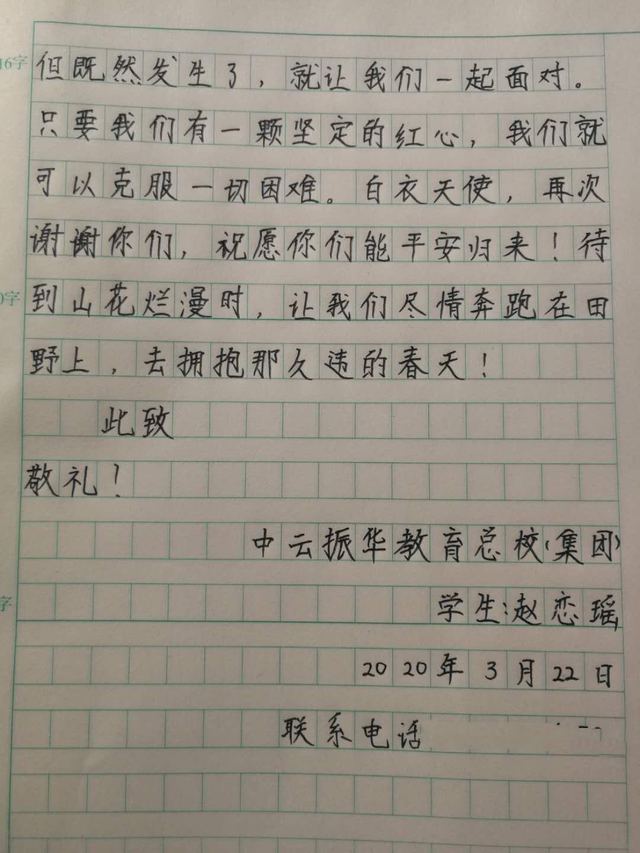 16字
但既然发生了，就让我们一起面对。
只要我们有一颗坚定的红心，我们就
可以克服一切困难。白衣天使，再次
谢谢你们，祝愿你们能平安归来！待
到山花烂漫时，让我们尽情奔跑在田
野上，去拥抱那久违的春天！
此致
敬礼！
中云振华教育总校（集团）
学生：赵恋瑶
2020年3月22日
联系电话